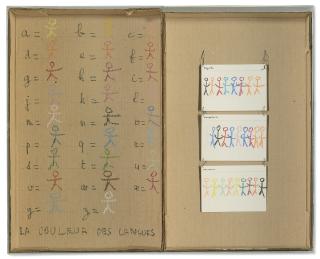 a = b = c =
d = e = f =
g = h = i =
j = k = l =
m = n = o =
p = q = r =
s = t = u =
v = w = x =
y = z =
LA COULEUR DES LANGUES